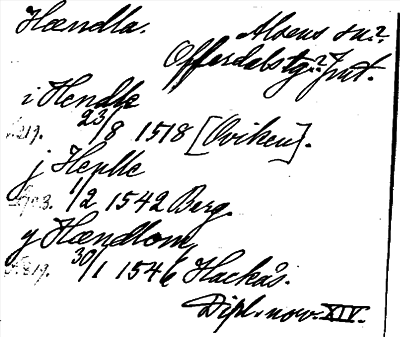 Hændla.
Alsens sn.?
Offerdals tg.? Jmt.
i Hendle
23/8 1518 [Oviken].
j Heplle
1/2 1542 Berg.
y Hændlom,
30/1 1546 Hackås.
Dipl. nov. XIV.